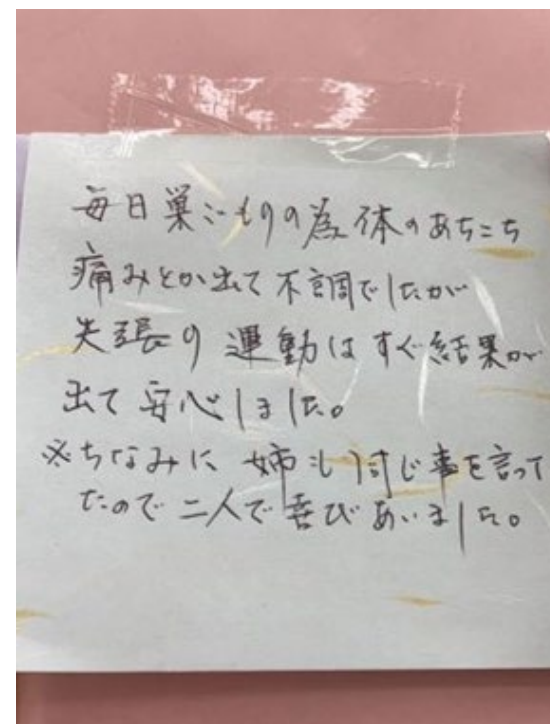 毎日巣ごもりの為体のあちこち
痛みとか出て不調でしたが
矢張り運動はすぐ結果が
出て安心しました。
※ちなみに姉も同じ事を言って
たので二人で喜びあいました。